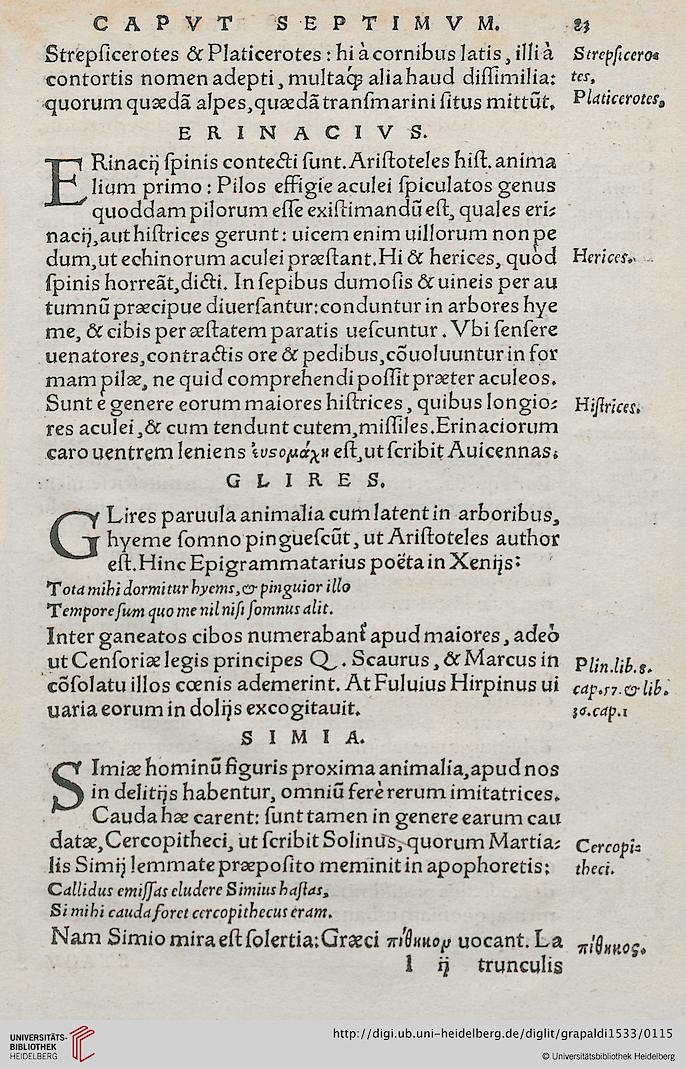 CAPVT SEPTIMVM. 83
Strepſicerotes & Platicerotes : hi à cornibus latis, illi à
contortis nomen adepti, multaq́ꝫ alia haud diſsimilia:
quorum quædã alpes, quædã tranſmarini ſitus mittũt.
Strepſicero⸗
tes.
Platicerotes.
ERINACIVS.
ERinacij ſpinis contecti ſunt. Ariſtoteles hiſt. anima
lium primo : Pilos effigie aculei ſpiculatos genus
quoddam pilorum eſſe exiſtimandũ eſt, quales eri⸗
nacij, aut hiſtrices gerunt: uicem enim uillorum non pe
dum, ut echinorum aculei præſtant. Hi & herices, quòd
Herices.
ſpinis horreãt, dicti. In ſepibus dumoſis & uineis per au
tumnũ præcipue diuerſantur: conduntur in arbores hye
me, & cibis per æſtatem paratis ueſcuntur. Vbi ſenſere
uenatores, contractis ore & pedibus, cõuoluuntur in for
mam pilæ, ne quid comprehendi poſsit præter aculeos.
Sunt è genere eorum maiores hiſtrices, quibus longio⸗
Hiſtrices.
res aculei, & cum tendunt cutem, miſsiles. Erinaciorum
caro uentrem leniens eſt, ut ſcribit Auicennas.
GLIRES.
GLires paruula animalia cum latent in arboribus,
hyeme ſomno pingueſcũt, ut Ariſtoteles author
eſt. Hinc Epigrammatarius poëta in Xenijs:
Tota mihi dormitur hyems, & pinguior illo
Tempore ſum quo me nil niſi ſomnus alit.
Inter ganeatos cibos numerabant apud maiores, adeò
ut Cenſoriæ legis principes Q. Scaurus, & Marcus in
cõſolatu illos cœnis ademerint. At Fuluius Hirpinus ui
uaria eorum in dolijs excogitauit.
Plin.lib.8.
cap.57. & lib.
36.cap.1
SIMIA.
SImiæ hominũ figuris proxima animalia, apud nos
in delitijs habentur, omniũ ferè rerum imitatrices.
Cauda hæ carent: ſunt tamen in genere earum cau
datæ, Cercopitheci, ut ſcribit Solinus, quorum Martia⸗
lis Simij lemmate præpoſito meminit in apophoretis:
Cercopi⸗
theci.
Callidus emiſſas eludere Simius haſtas,
Si mihi cauda foret cercopithecus eram.
Nam Simio mira eſt ſolertia: Græci πίθηκον uocant. La
πίθηκος.
l ij trunculis
UNIVERSITÄTS-
BIBLIOTHEK
HEIDELBERG
http://digi.ub.uni-heidelberg.de/diglit/grapaldi1533/0115
© Universitätsbibliothek Heidelberg